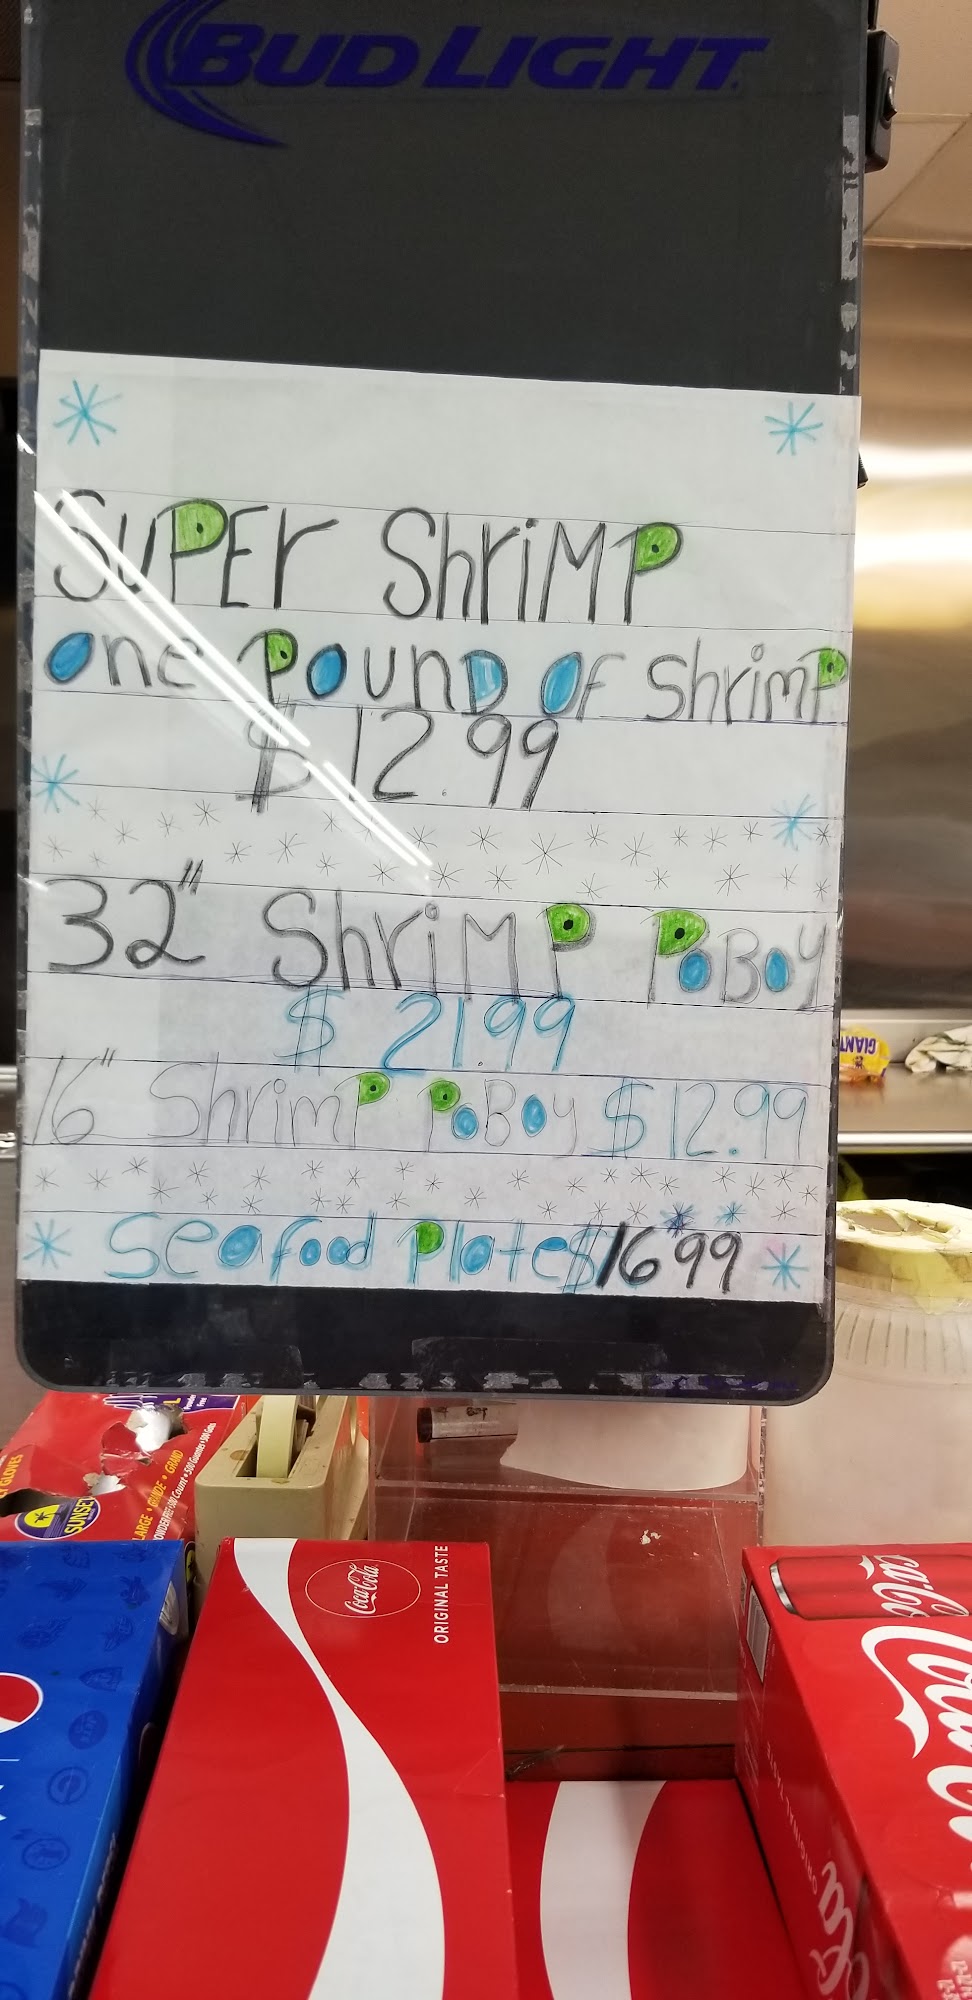 BUD LIGHT
SuPEr ShriMP
one PounD of ShrimP
$12.99
32" ShriMP PoBoy
$ 21.99
16" ShrimP PoBoy $12.99
Seafood Plate $16.99
GIANT
SUNSET
LARGE • GRANDE • GRAND
Coca-Cola
ORIGINAL TASTE
Coca-Cola